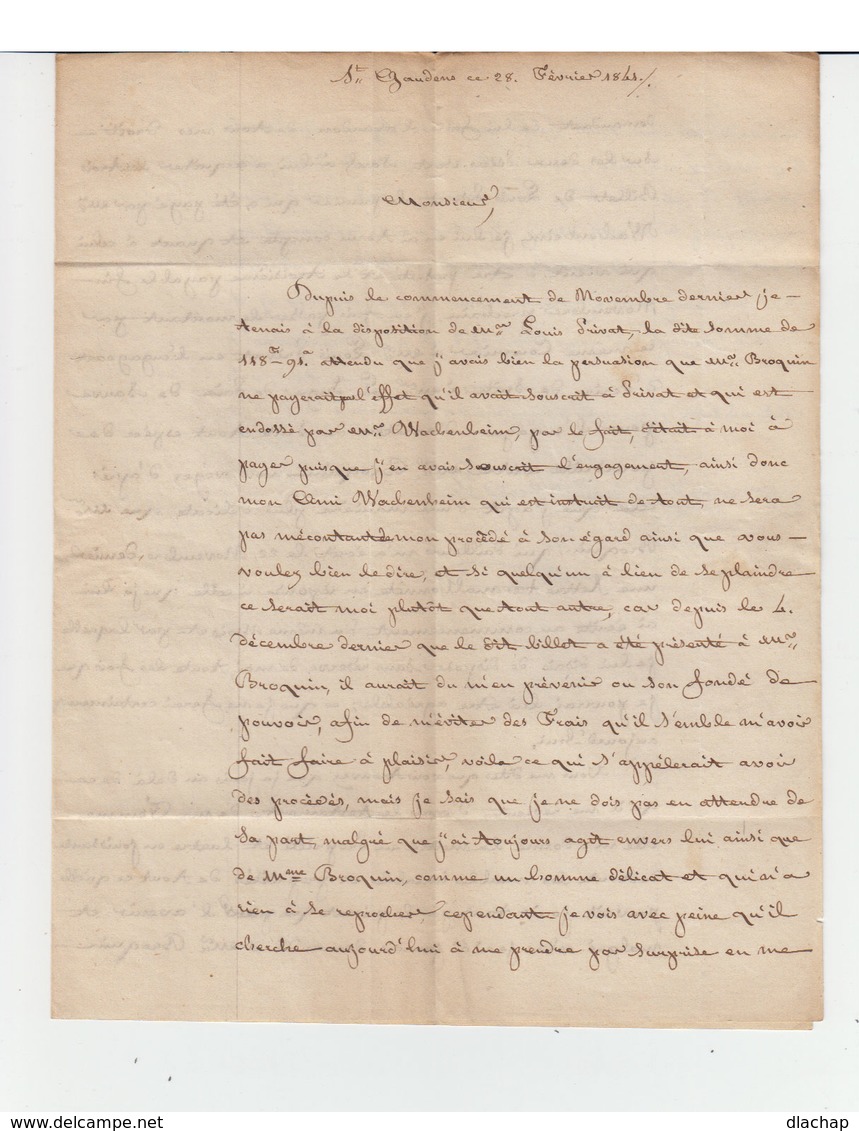 St. Gaudens ce 28. Février 1841./.
Monsieur,
Depuis le commencement de Novembre dernier je
tenais à la disposition de Mr. Louis Privat, la dite somme de
118 f. 91 c. attendu que j'avais bien la persuation que Mr. Broquin
ne payerait pas l'effet qu'il avait souscrit à Privat et qui est
endossé par Mr. Wachenheim, par le fait, c'était à moi à
pager puisque j'en avais souscrit l'engagement, ainsi donc
mon Ami Wachenheim qui est instruit de tout, ne sera
pas mécontant de mon procédé à son égard ainsi que vous
voulez bien le dire, et si quelqu'un à lieu de se plaindre
ce serait moi plutôt que tout autre, car depuis le 4.
décembre dernier que le dit billet a été présenté à Mr.
Broquin, il aurait du m'en prévenir ou son fondé de
pouvoir, afin de m'éviter des Frais qu'il s'emble m'avoir
fait faire à plaisir, voila ce qui s'appélerait avoir
des procédés, mais je sais que je ne dois pas en attendre de
sa part, malgré que j'ai toujours agit envers lui ainsi que
de Mme Broquin, comme un homme délicat et qui n'a
rien à se reprocher, cependant je vois avec peine qu'il
cherche aujourd'hui à me prendre par surprise en me
dlachap